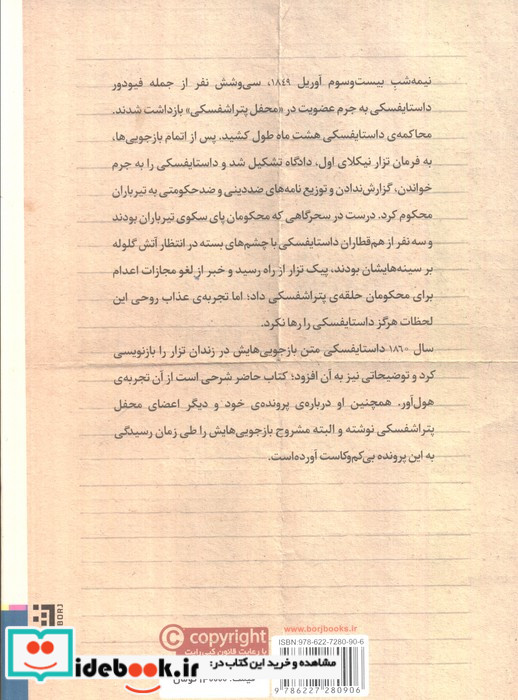 نیمه‌شبِ بیست‌وسوم آوریل ۱۸۴۹، سی‌وشش نفر از جمله فیودور
داستایفسکی به جرم عضویت در «محفل پتراشفسکی» بازداشت شدند.
محاکمه‌ی داستایفسکی هشت ماه طول کشید. پس از اتمام بازجویی‌ها،
به فرمان تزار نیکلای اول، دادگاه تشکیل شد و داستایفسکی را به جرم
خواندن، گزارش‌ندادن و توزیع نامه‌های ضددینی و ضدحکومتی به تیرباران
محکوم کرد. درست در سحرگاهی که محکومان پای سکوی تیرباران بودند
و سه نفر از هم‌قطاران داستایفسکی با چشم‌های بسته در انتظار آتش گلوله
بر سینه‌هایشان بودند، پیک تزار از راه رسید و خبر از لغو مجازات اعدام
برای محکومان حلقه‌ی پتراشفسکی داد؛ اما تجربه‌ی عذاب روحی این
لحظات هرگز داستایفسکی را رها نکرد.
سال ۱۸۶۰ داستایفسکی متن بازجویی‌هایش در زندان تزار را بازنویسی
کرد و توضیحاتی نیز به آن افزود؛ کتاب حاضر شرحی است از آن تجربه‌ی
هول‌آور. همچنین او درباره‌ی پرونده‌ی خود و دیگر اعضای محفل
پتراشفسکی نوشته و البته مشروح بازجویی‌هایش را طی زمان رسیدگی
به این پرونده بی‌کم‌وکاست آورده‌است.
BORJ
www.borjbooks.ir
ISBN 978-622-7280-90-6
9 786227 280906
© copyright
با رعایت قانون کپی رایت
مشاهده و خرید این کتاب در:
idebook.ir
تومان